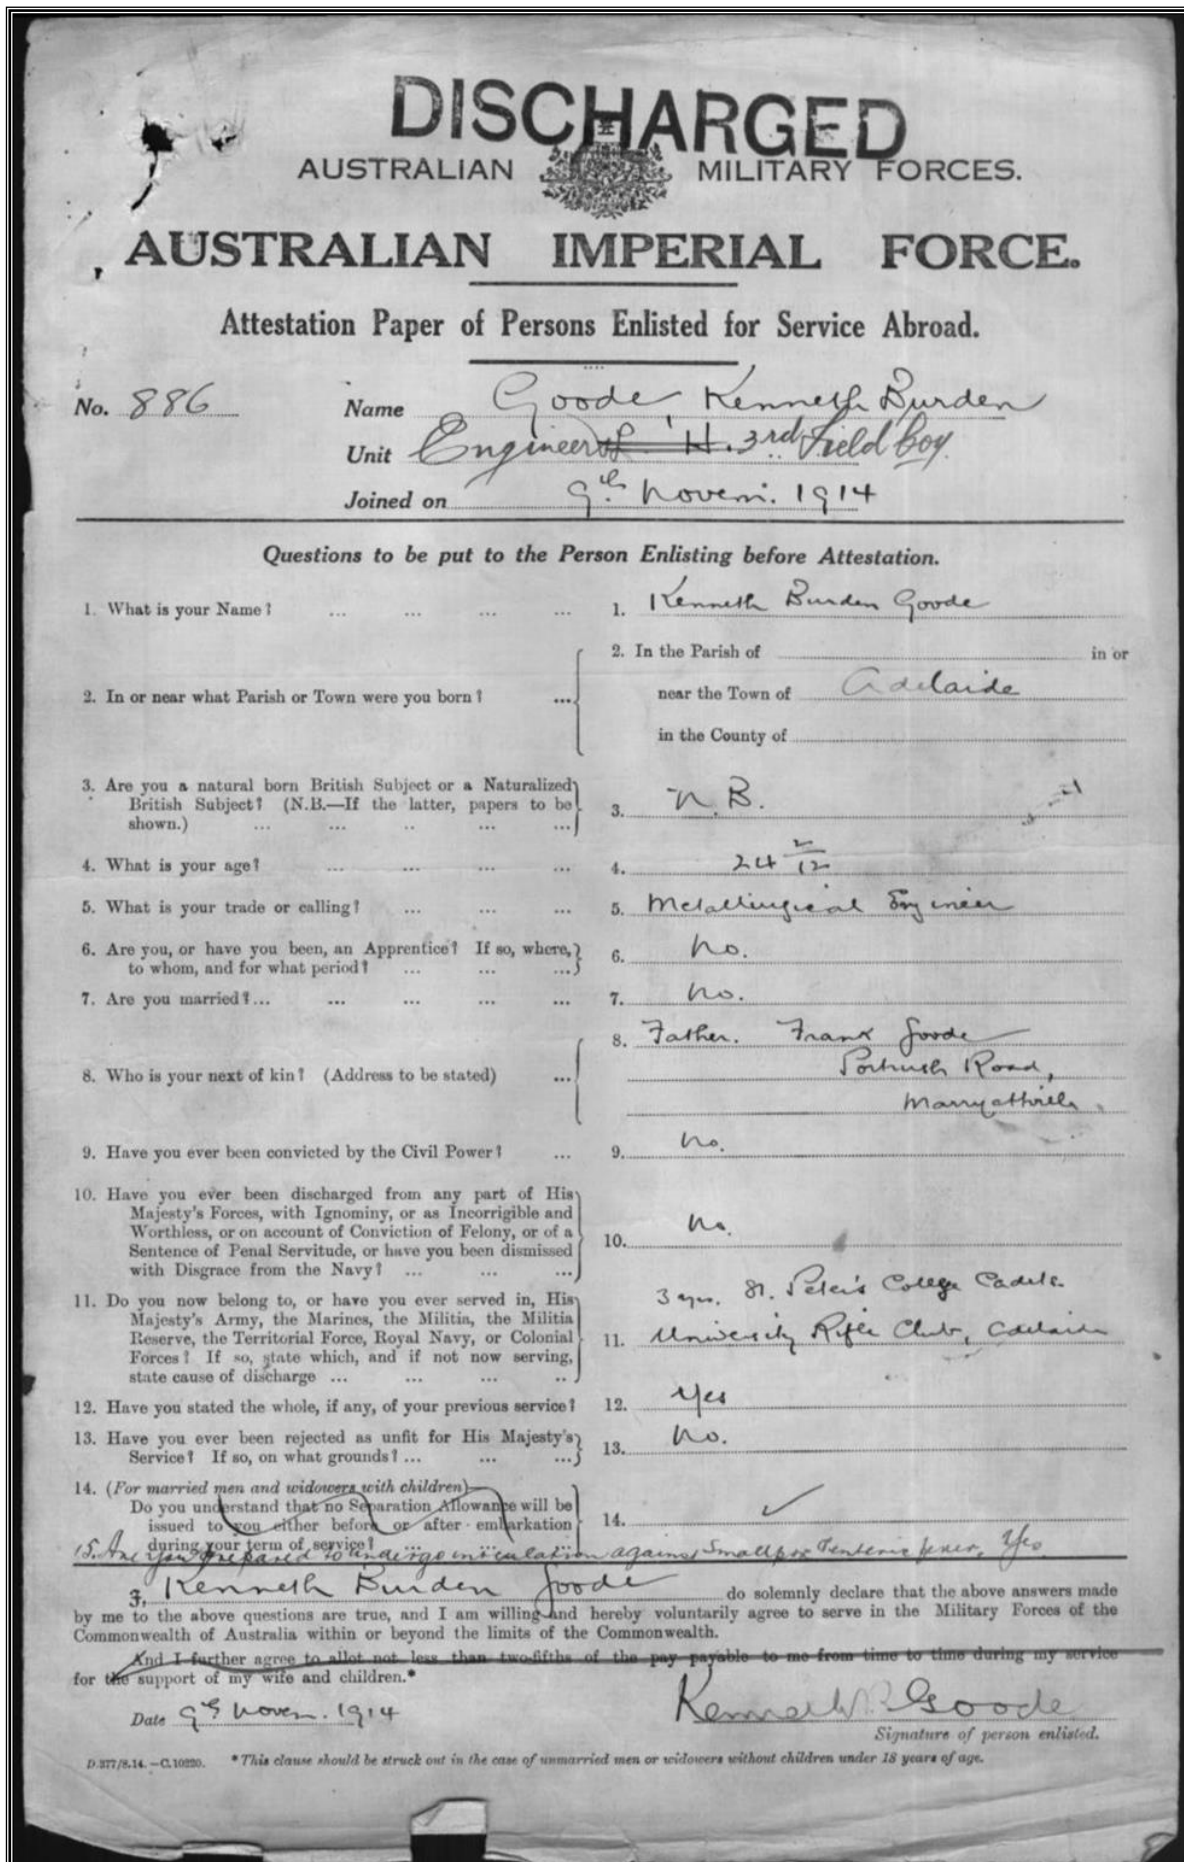 DISCHARGED
AUSTRALIAN MILITARY FORCES.
AUSTRALIAN IMPERIAL FORCE.
Attestation Paper of Persons Enlisted for Service Abroad.
No. 886 Name Goode, Kenneth Burden
Unit Engineers H. 3rd Field Coy.
Joined on 9th Novem. 1914
Questions to be put to the Person Enlisting before Attestation.
1. What is your Name? ... ... ... ... 1. Kenneth Burden Goode
2. In the Parish of in or
2. In or near what Parish or Town were you born? ... near the Town of Adelaide
in the County of
3. Are you a natural born British Subject or a Naturalized
British Subject? (N.B.—If the latter, papers to be 3. N.B.
shown.) ... ... .. ... ...
4. What is your age? ... ... ... ... 4. 24 2/12
5. What is your trade or calling? ... ... ... 5. Metallurgical Engineer
6. Are you, or have you been, an Apprentice? If so, where, 6. No.
to whom, and for what period? ... ... ...
7. Are you married?... ... ... ... ... 7. No.
8. Father. Frank Goode
8. Who is your next of kin? (Address to be stated) ... Portrush Road,
Marryatville
9. Have you ever been convicted by the Civil Power? ... 9. No.
10. Have you ever been discharged from any part of His
Majesty's Forces, with Ignominy, or as Incorrigible and
Worthless, or on account of Conviction of Felony, or of a 10. No.
Sentence of Penal Servitude, or have you been dismissed
with Disgrace from the Navy? ... ... ...
11. Do you now belong to, or have you ever served in, His 3 yrs. St. Peter's College Cadets.
Majesty's Army, the Marines, the Militia, the Militia
Reserve, the Territorial Force, Royal Navy, or Colonial 11. University Rifle Club, Adelaide
Forces? If so, state which, and if not now serving,
state cause of discharge ... ... ... ..
12. Have you stated the whole, if any, of your previous service? 12. Yes
13. Have you ever been rejected as unfit for His Majesty's 13. No.
Service? If so, on what grounds? ... ... ...
14. (For married men and widowers with children)
Do you understand that no Separation Allowance will be
issued to you either before or after embarkation 14.
during your term of service? ... ... ...
15. Are you prepared to undergo inoculation against Smallpox & enteric fever. Yes
I, Kenneth Burden Goode do solemnly declare that the above answers made
by me to the above questions are true, and I am willing and hereby voluntarily agree to serve in the Military Forces of the
Commonwealth of Australia within or beyond the limits of the Commonwealth.
And I further agree to allot not less than two-fifths of the pay payable to me from time to time during my service
for the support of my wife and children.*
Date 9th Novem. 1914 Kenneth B Goode
Signature of person enlisted.
D.377/8.14.—C.10220. *This clause should be struck out in the case of unmarried men or widowers without children under 18 years of age.